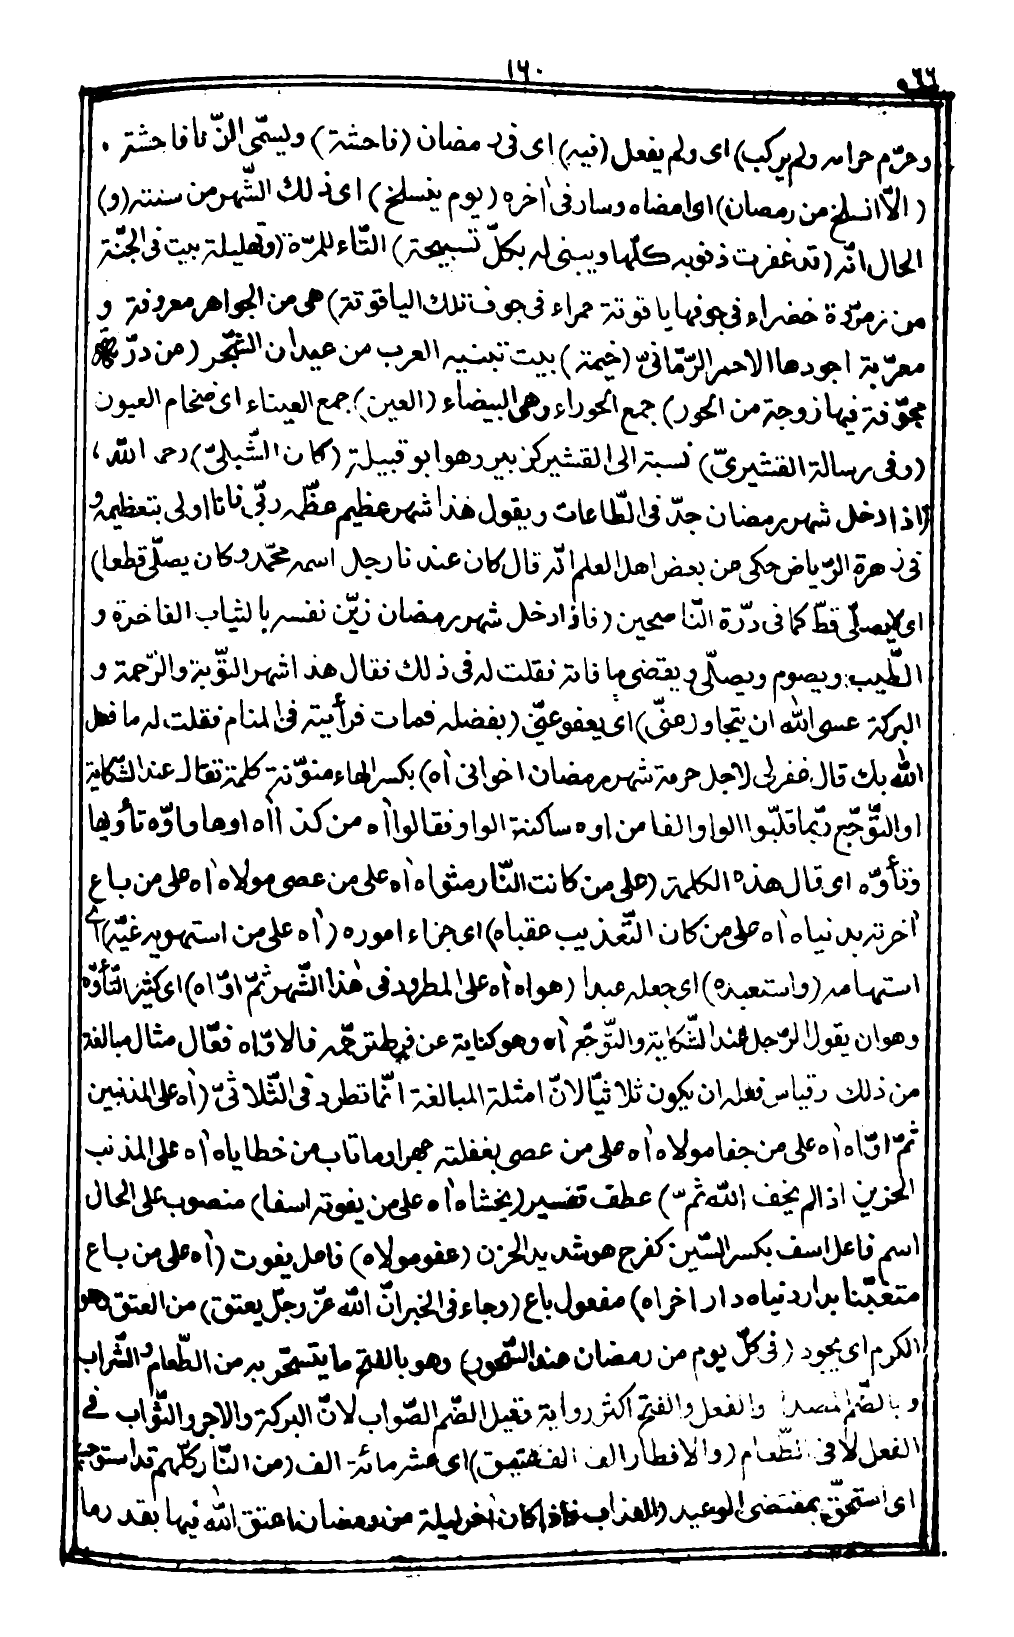 ١٦٠
وحرّم حرامه ولم يركب) اى ولم يفعل (فيه) اى فى رمضان (فاحشة) ويسمّى الزّنا فاحشة
(الاّ انسلخ من رمضان) اى امضاه وسار فى اٰخره (يوم ينسلخ) اى ذلك الشّهر من سنته (و)
الحال انّه (قد غفرت ذنوبه كلّها ويبنى له بكلّ تسبيحة) التّاء للمرّة (وتهليلة بيت فى الجنّة
من زمرّدة خضراء فى جوفها ياقوتة حمراء فى جوف تلك الياقوتة) هى من الجواهر معروفة و
معرّبة اجودها الاحمر الرّمّانىّ (خيمة) بيت تبنيه العرب من عيدان الشّجر (من درّة
مجوّفة فيها زوجة من الحور) جمع الحوراء وهى البيضاء (العين) جمع العيناء اى ضخام العيون
(وفى رسالة القشيرىّ) نسبة الى القشير كزبير وهو ابو قبيلة (كان الشّبلىّ) رحمه الله،
(اذا دخل شهر رمضان جدّ فى الطّاعات ويقول هذا شهر عظيم عظّمه ربّى فانا اولى بتعظيمه و
فى زهرة الرّياض حكى من بعض اهل العلم انّه قال كان عندنا رجل اسمه محمّد وكان يصلّى قطعا)
اى لا يصلّى قطّ كما فى درّة النّاصحين (فاذا دخل شهر رمضان زيّن نفسه بالثياب الفاخرة و
الطّيب ويصوم ويصلّى ويقضى ما فاته فقلت له فى ذلك فقال هذا شهر التّوبة والرّحمة و
البركة عسى الله ان يتجاوز عنّى) اى يعفو عنّى (بفضله فمات فرأيته فى المنام فقلت له ما فعل
الله بك قال غفر لى لاجل حرمة شهر رمضان اخوانى اٰه) بكسر الهاء منوّنة كلمة تقال عند الشّكاية
او التّوجّع ربّما قلبّوا الواو الفا من اوه ساكنة الواو فقالوا اٰه من كذا اٰه اوها واوّه تأويها
وتأوّه اى قال هذه الكلمة (على من كانت النّار مثواه اٰه على من عصى مولاه اٰه على من باع
اٰخرته بدنياه اٰه على من كان التّعذيب عقباه) اى جزاء اموره (اٰه على من استهويه غيّه) اى
استهامه (واستعبده) اى جعله عبدا (هواه اٰه على المطرود فى هذا الشّهر ثمّ اوّاه) اى كثير التّأوّه
وهو ان يقول الرّجل عند الشّكاية والتّوجّع اٰه وهو كناية عن فرط ترحّمه فالاوّاه فعّال مثال مبالغة
من ذلك وقياس فعله ان يكون ثلاثيّا لانّ امثلة المبالغة انّما تطرد فى الثّلاثىّ (اٰه على المذنبين
ثمّ اوّاه اٰه على من جفا مولاه اٰه على من عصى بغفلته جهرا وما تاب من خطاياه اٰه على المذنب
الحزين اذا لم يخف الله ثمّ) عطف تفسير (يخشاه اٰه على من يفوته اسفا) منصوب على الحال
اسم فاعل اسف بكسر السّين كفرح هو شديد الحزن (عفو مولاه) فاعل يفوت (اٰه على من باع
متعبّنا بدار دنياه دار اخراه) مفعول باع (وجاء فى الخبر انّ الله عزّ وجلّ يعتق) من العتق وهو
الكرم اى يجود (فى كلّ يوم من رمضان عند السّحور) وهو بالفتح ما يتسحّر به من الطّعام والشّراب
وبالضّم المصدر والفعل والفتح اكثر رواية وقيل الضّم الصّواب لانّ البركة والاجر والثّواب فى
الفعل لا فى الطّعام (والافطار الف الف عتيق) اى عشر مائة الف (من النّار كلّهم قد استوجبـ
اى استحقّ بمقتضى الوعيد (العذاب فاذا كان اٰخر ليلة من رمضان اعتق الله فيها بقدر ما